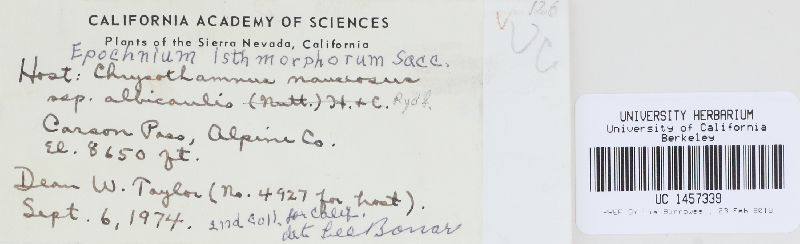 CALIFORNIA ACADEMY OF SCIENCES
Plants of the Sierra Nevada, California
Epochnium isthmorphorum Sacc.
Host: Chrysothamnus nauseosus
ssp. albicaulis (Nutt.) H. & C. Rydb.
Carson Pass, Alpine Co.
El. 8650 ft.
Dean W. Taylor (No. 4927 for host).
Sept. 6, 1974. 2nd coll. for Calif.
det Lee Bonar
126
UC
UNIVERSITY HERBARIUM
University of California
Berkeley
UC 1457339
23 Feb 2018